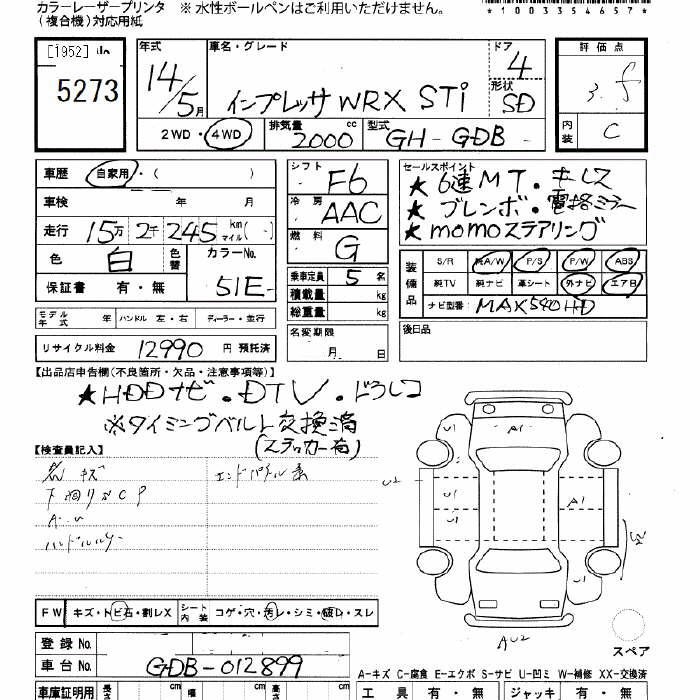 カラーレーザープリンタ ※ 水性ボールペンはご利用いただけません。
(複合機)対応用紙
*1003354657*
[1952]
5273
年式 車名・グレード ドア 評価点
14/5月 インプレッサ WRX STi 4
形状 SD
2WD・4WD 排気量 2000 cc 型式 GH-GDB
内装 C
車歴 自家用・( )
車検 年 月
走行 15万 2千 245 km マイル ( )
色 白 色替 カラーNo. 51E
保証書 有・無
シフト F6
冷房 AAC
燃料 G
乗車定員 5 名
積載量 kg
総重量 kg
セールスポイント
★ 6速MT・キーレス
★ ブレンボ・電格ミラー
★ momoステアリング
装備品 S/R 純A/W P/S P/W ABS
純TV 純ナビ 革シート 外ナビ エアB
ナビ型番
モデル年式 年 ハンドル 左・右 ディーラー・並行
名変期限 月 日
後日品
リサイクル料金 12990 円 預託済
【出品店申告欄(不良箇所・欠品・注意事項等)】
★HDDナビ・DTV・ドラレコ
※タイミングベルト交換済
(ステッカー有)
【検査員記入】
キズ
A1
U1
U1
U2
U1
A1
U1
U1
AU2
スペア
FW キズ・トビ石・割レX シート内装 コゲ・穴・汚レ・シミ・破レ・スレ
登録 No.
車台 No. GDB-012899
A-キズ C-腐食 E-エクボ S-サビ U-凹ミ W-補修 XX-交換済
車庫証明用 長さ cm 幅 cm 高さ cm 工具 有・無 ジャッキ 有・無